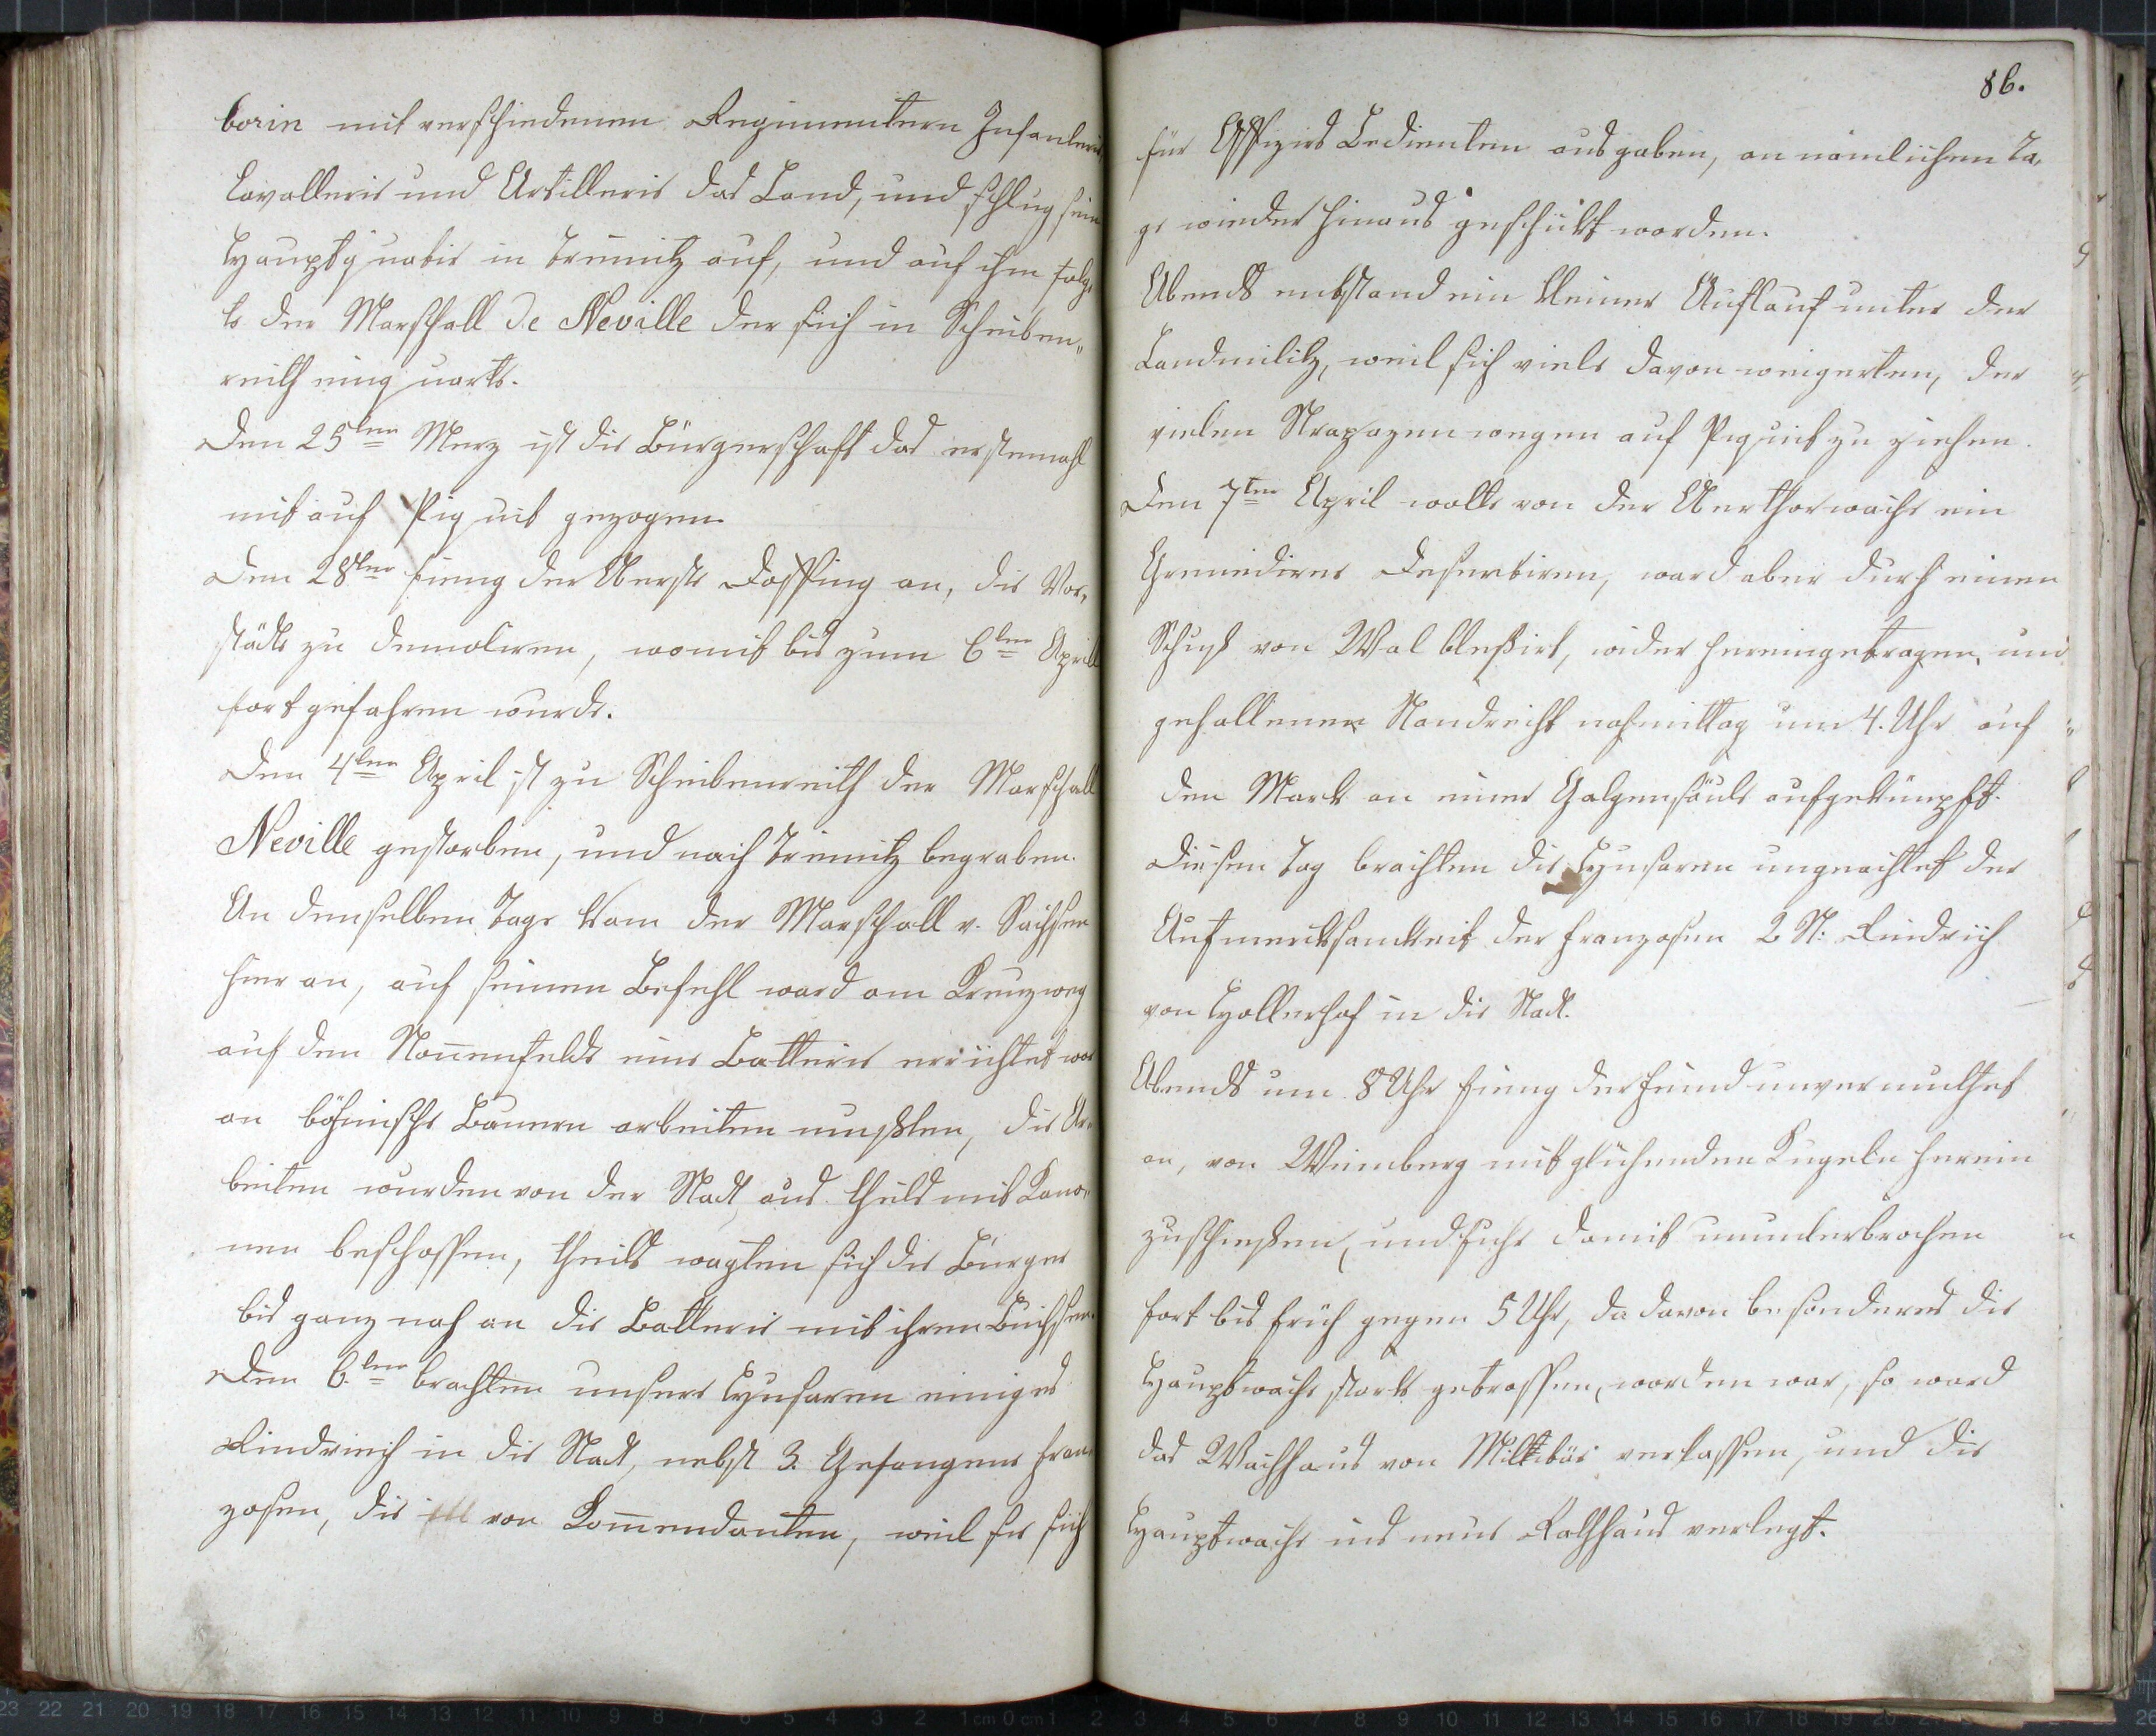 borin mit verschiedenen Regimentern Infanterie
Cavallerie und Artillerie das Land, und schlug sein
Hauptquatir in Treinitz auf, und auf ihm folg„
te der Marschall de Neville der sich in Scheiben„
reith einquarte.
Den 25ten Merz ist die Bürgerschaft das erstemahl
mit auf Piquit gezogen.
Den 28ten fieng der Oberste Dosfing an, die Vor„
städte zu demoliren, womit bis zum 6ten April
fortgefahren wurde.
Den 4ten April ist zu Scheibenreith der Marschall
Neville gestorben, und nach Treinitz begraben.
An denselben Tage kam der Marschall v. Sachsen
hier an, auf seinen Befehl ward am Kreuzweg
auf den Nonenfelde eine Batterie errichtet wor
an böhmische Bauern arbeiten mußten, die Ar„
beiten wurden von der Stadt aus theils mit Kano„
nen beschossen, theils wagten sich die Bürger
bis ganz nah an die Batterie mit ihren Büchsen.
Den 6.ten brachten unsere Husaren einiges
Rindvieh in die Stadt, nebst 3. Gefangene Fran„
zosen, die von Komendanten, weil sie sich
86.
für Offiziers Bedienten ausgaben, an nämlichen Ta„
ge wieder hinaus geschickt worden.
Abends entstand ein kleiner Auflauf unter der
Landmilitz, weil sich viele davon weigerten, der
vielen Strapazen wegen auf Piquit zu ziehen.
Den 7ten April wolte von der Oberthorwache ein
Grenadierer Desertiren, ward aber durch einen
Schuß von Wal bleßirt, wider hereingetragen, und
gehaltenen Standrecht nachmittag um 4. Uhr auf
den Markt an einer Galgensäule aufgeknüpft.
Diesen Tag brachten die Husaren ungeachtet der
Aufmercksamkeit der Franzosen 2 St: Rindvich
von Hollerhof in die Stadt.
Abends um 8 Uhr fieng der Feind unvermuthet
an, von Weinberg mit glühenden Kugeln herein
zuschießen, und fuhr damit ununterbrochen
fort bis früh gegen 5 Uhr, da davon besonderes die
Hauptwache stark getroffen, worden war, so ward
das Wachhaus von Militär verlassen, und die
Hauptwache ins neue Rathhaus verlegt.